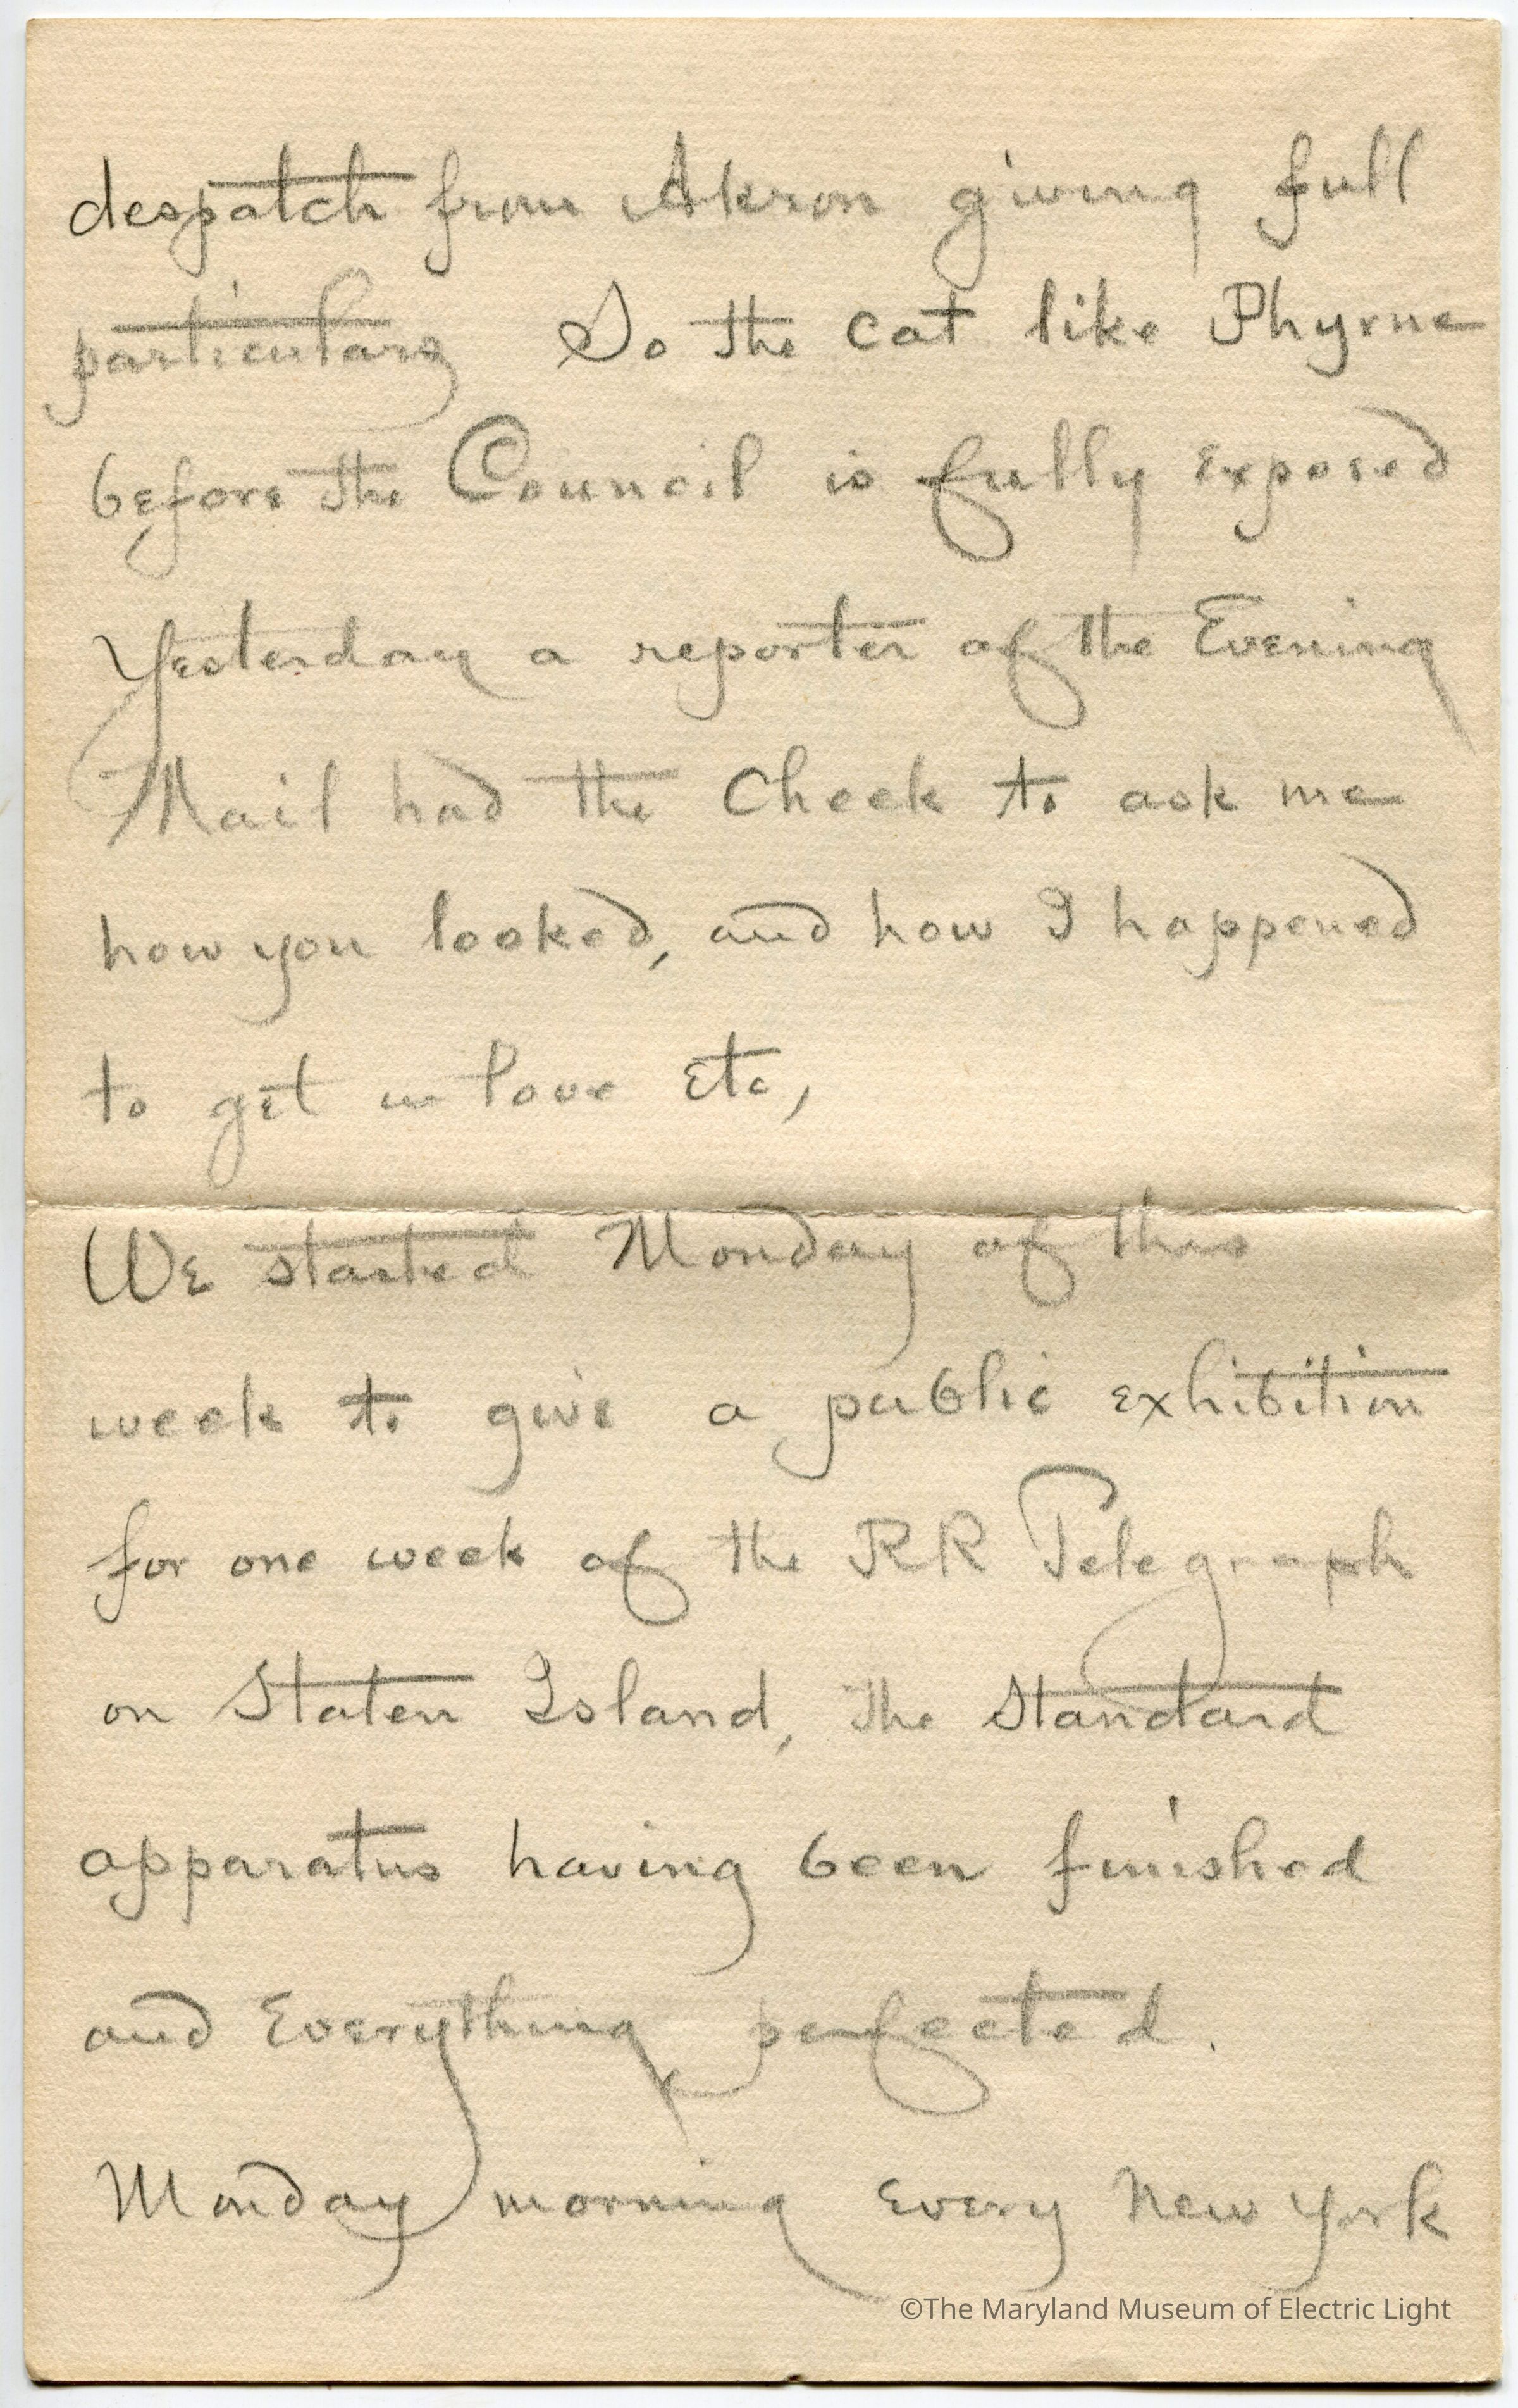 despatch from Akron giving full
particulars So the cat like Phyrne
before the Council is fully exposed
Yesterday a reporter of the Evening
Mail had the Cheek to ask me
how you looked, and how I happened
to get in love Etc,
We started Monday of this
week to give a public exhibition
for one week of the RR Telegraph
on Staten Island, The Standard
apparatus having been finished
and Everything perfected.
Monday morning Every New York
©The Maryland Museum of Electric Light